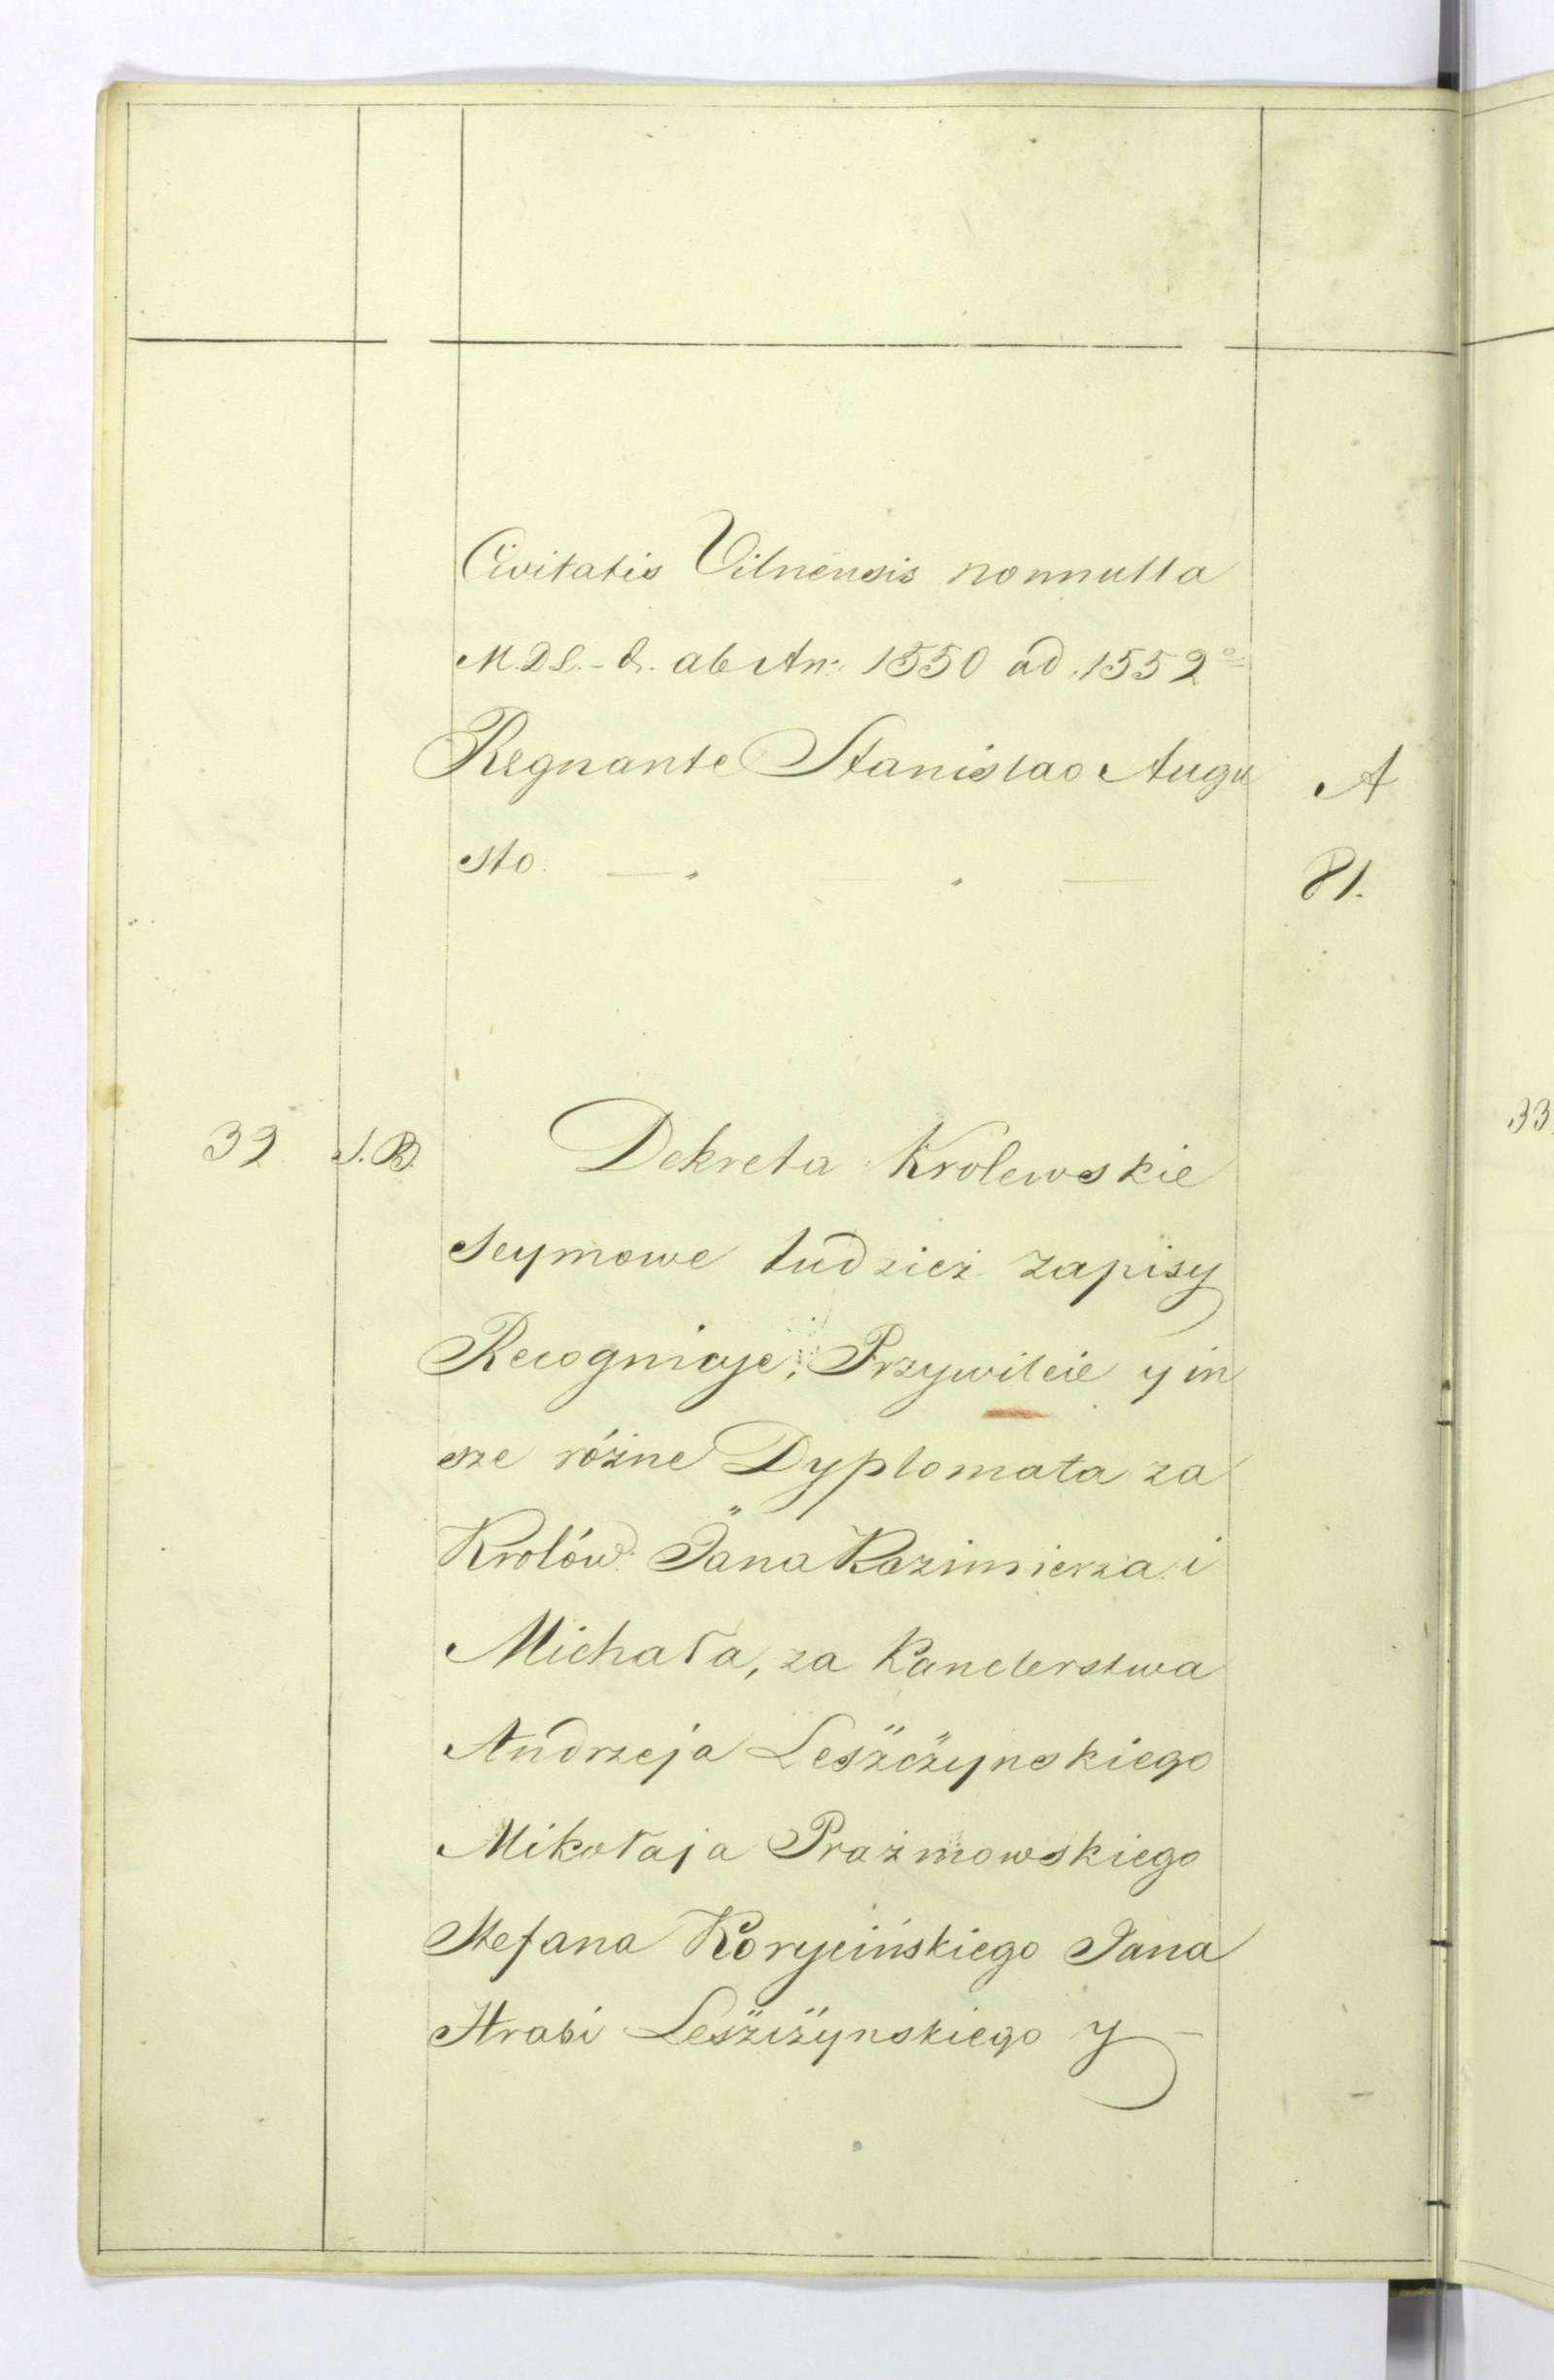 Civitatis Vilnensis nonnulla
M.D.L. - d. ab An: 1550 ad 1552º
Regnante Stanislao Augu
A
sto.
81.
32 I.B. Dekreta Krolewskie
seymowe tudzież zapisy
Recognicye, Przywileie y in
sze różne Dyplomata za
Krolów Jana Kazimierza i
Michała, za Kanclerstwa
Andrzeja Leszczynskiego
Mikołaja Prażmowskiego
Stefana Korycińskiego Jana
Hrabi Leszczynskiego y
33